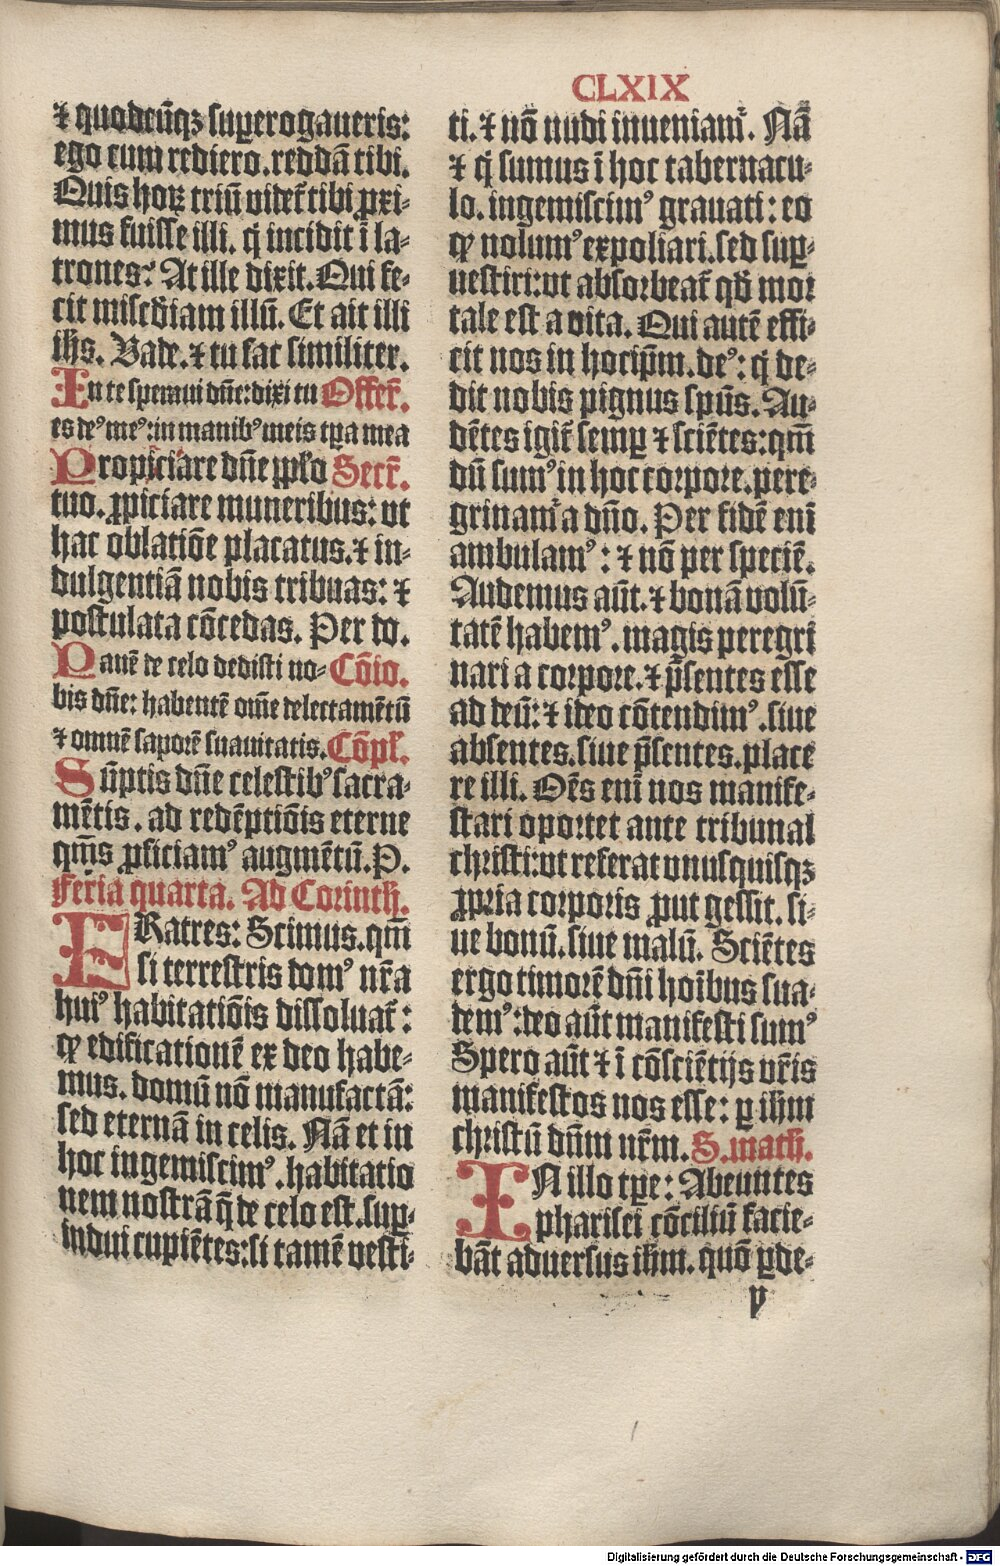 CLXIX
⁊ quodcūqꝫ superogaueris:
ego cum rediero. reddā tibi.
Quis hoꝝ triū videt̄ tibi ꝓxi-
mus fuisse illi. q̇ incidit ī la-
trones? At ille dixit. Qui fe-
cit miscd̄iam illū. Et ait illi
ihs. Vade. ⁊ tu fac similiter.
In te speraui dn̄e: dixi tu Offer̄.
es deꝰ meꝰ: in manibꝰ meis tp̄a mea
Propiciare dn̄e pp̄lo Secr̄.
tuo. ꝓpiciare muneribus: vt
hac oblatiōe placatus. ⁊ in-
dulgentiā nobis tribuas: ⁊
postulata cōcedas. Per do.
Panē de celo dedisti no- Cōio.
bis dn̄e: habentē om̄e delectamētū
⁊ omnē saporē suauitatis. Cōpl̄.
Sūptis dn̄e celestibꝰ sacra-
mētis. ad redēptiōis eterne
qm̄s ꝓficiamꝰ augmētū. P.
Feria quarta. Ad Corinth̄.
FRatres: Scimus. qm̄
si terrestris domꝰ nr̄a
huiꝰ habitatiōis dissoluat̄:
ꝙ edificationē ex deo habe-
mus. domū nō manufactā:
sed eternā in celis. Nā et in
hoc ingemiscimꝰ. habitatio
nem nostrā q̄ de celo est. suꝑ-
indui cupiētes: si tamē vesti-
ti. ⁊ nō nudi inueniam̄. Nā
⁊ q̇ sumus ī hoc tabernacu-
lo. ingemiscimꝰ grauati: eo
ꝙ nolumꝰ expoliari. sed suꝑ-
uestiri: vt absorbeat̄ qd̄ mor
tale est a vita. Qui autē effi-
cit nos in hoc ip̄m. deꝰ: q̇ de-
dit nobis pignus sp̄us. Au-
dētes igit̄ semꝑ ⁊ sciētes: qm̄
dū sumꝰ in hoc corpore. pere-
grinam̄ a dn̄o. Per fidē eni̅
ambulamꝰ: ⁊ nō per speciē.
Audemus aūt. ⁊ bonā volū-
tatē habemꝰ. magis peregri
nari a corpore. ⁊ p̄sentes esse
ad deū: ⁊ ideo cōtendimꝰ. siue
absentes. siue p̄sentes. place
re illi. Oēs eni̅ nos manife-
stari oportet ante tribunal
christi: vt referat vnusquisqꝫ
ꝓpria corporis ꝓut gessit. si-
ue bonū. siue malū. Sciētes
ergo timorē dn̄i hoībus sua-
demꝰ: deo aūt manifesti sumꝰ
Spero aūt ⁊ ī cōsciētijs vr̄is
manifestos nos esse: ꝑ ihm̄
christū dn̄m nr̄m. S. math̄.
IN illo tp̄e: Abeuntes
pharisei cōciliū facie-
bāt aduersus ihm̄. quō ꝑde-
y
Digitalisierung gefördert durch die Deutsche Forschungsgemeinschaft - DFG